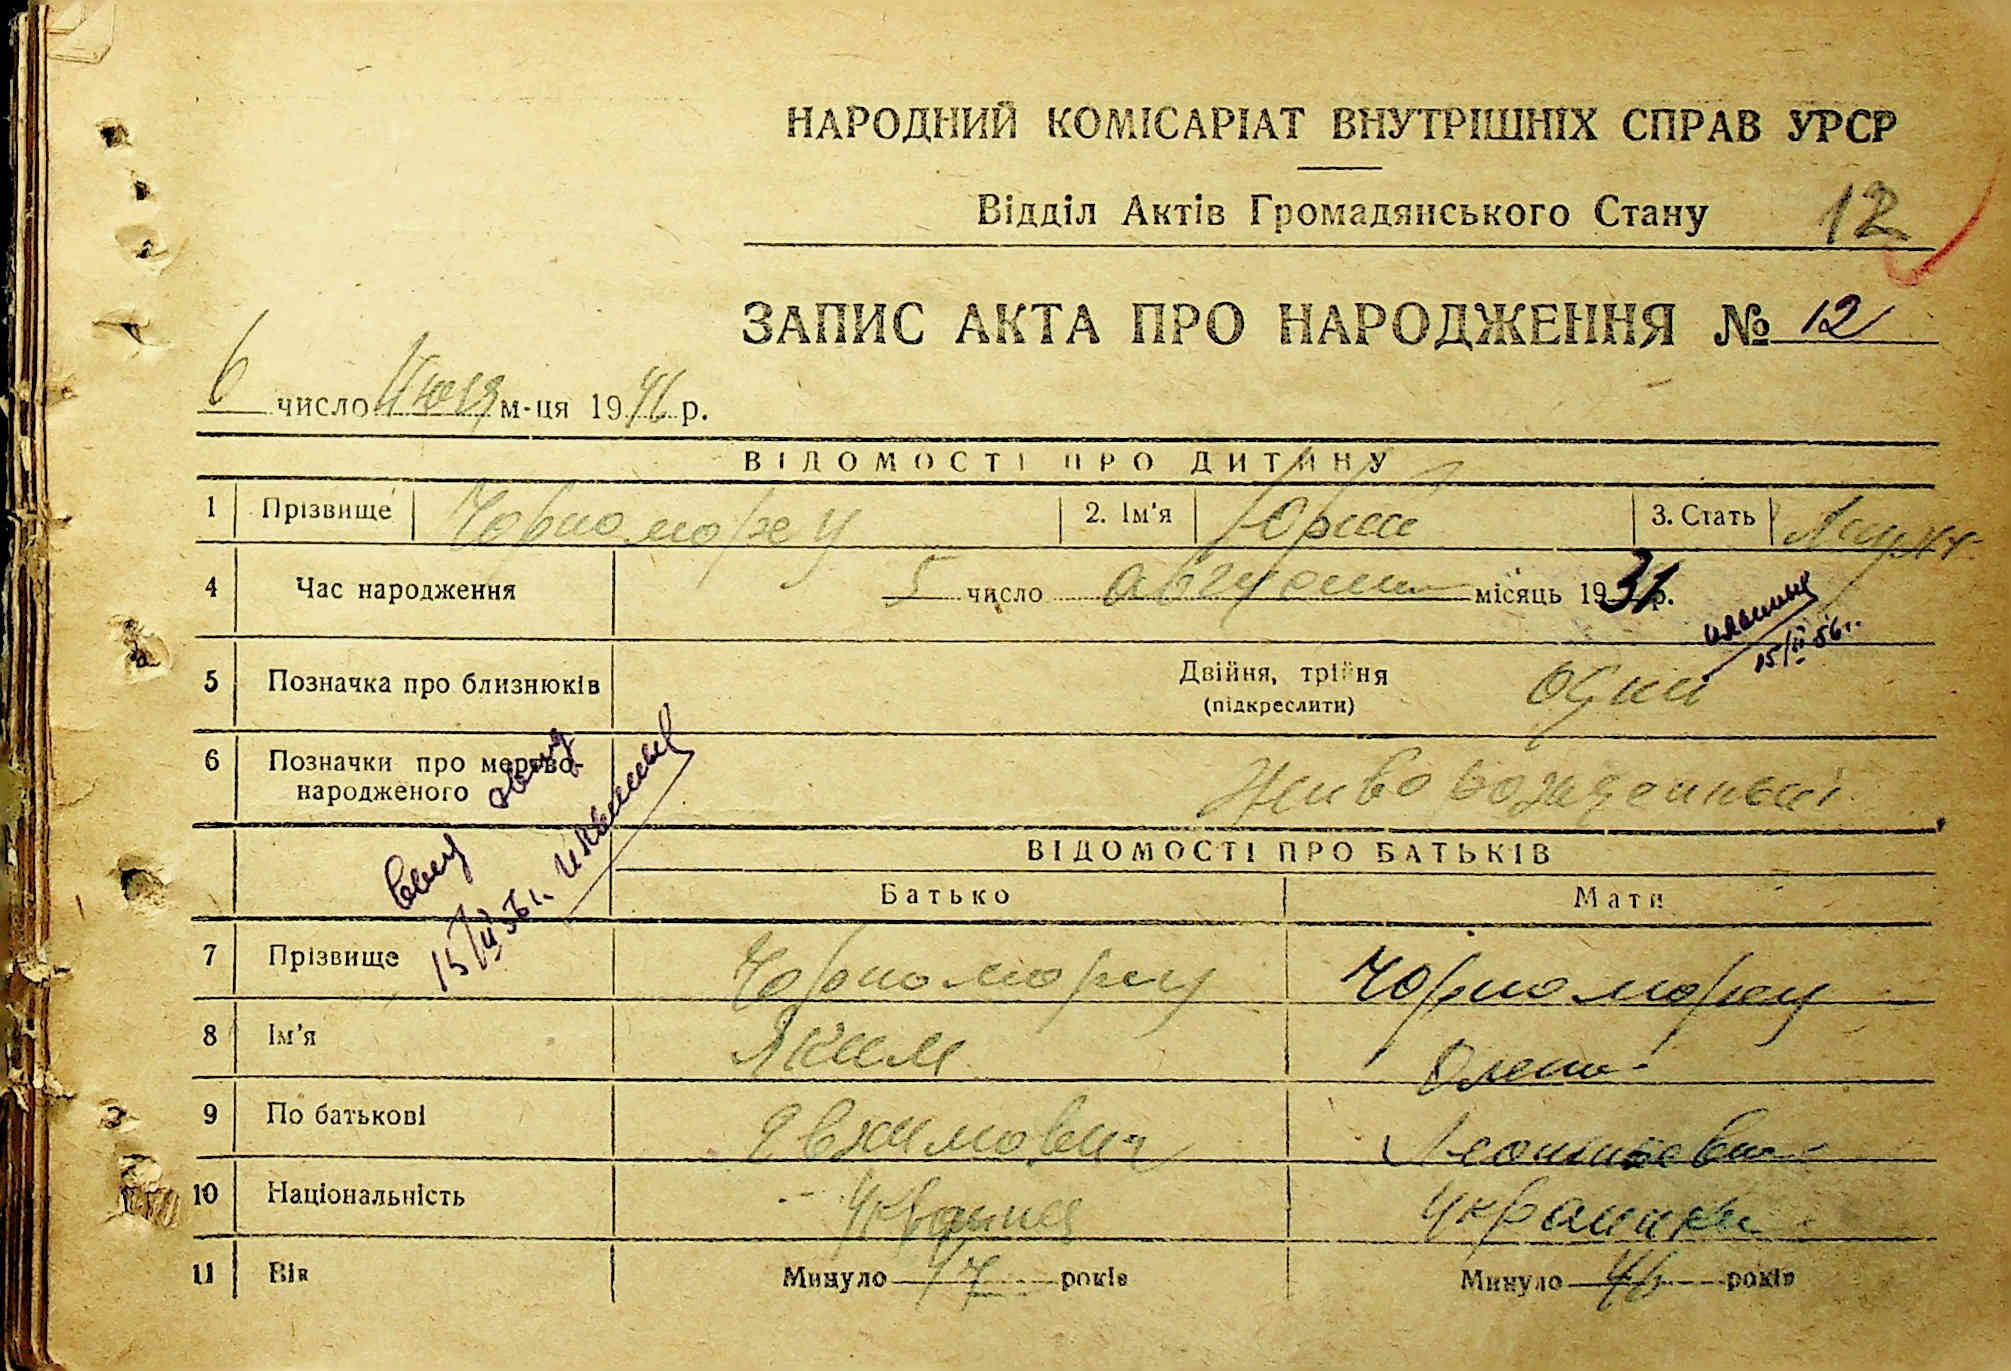 НАРОДНИЙ КОМІСАРІАТ ВНУТРІШНІХ СПРАВ УРСР
Відділ Актів Громадянського Стану 12
ЗАПИС АКТА ПРО НАРОДЖЕННЯ № 12
6 число Июля м-ця 1946 р.
ВІДОМОСТІ ПРО ДИТИНУ
1 Прізвище Чорноморец 2. Ім'я Юрий 3. Стать Мужч.
4 Час народження 5 число августа місяць 1931 р.
15/II 56 г.
5 Позначка про близнюків Двійня, трійня один
(підкреслити)
6 Позначки про мертво-
народженого Живорожденный
15/II 56 г.
ВІДОМОСТІ ПРО БАТЬКІВ
Батько Мати
7 Прізвище Чорноморец Чорноморец
8 Ім'я Яким Олена
9 По батькові Евхимович Леонтьевна
10 Національність Украинец Украинка
11 Вік Минуло 47 років Минуло 46 років